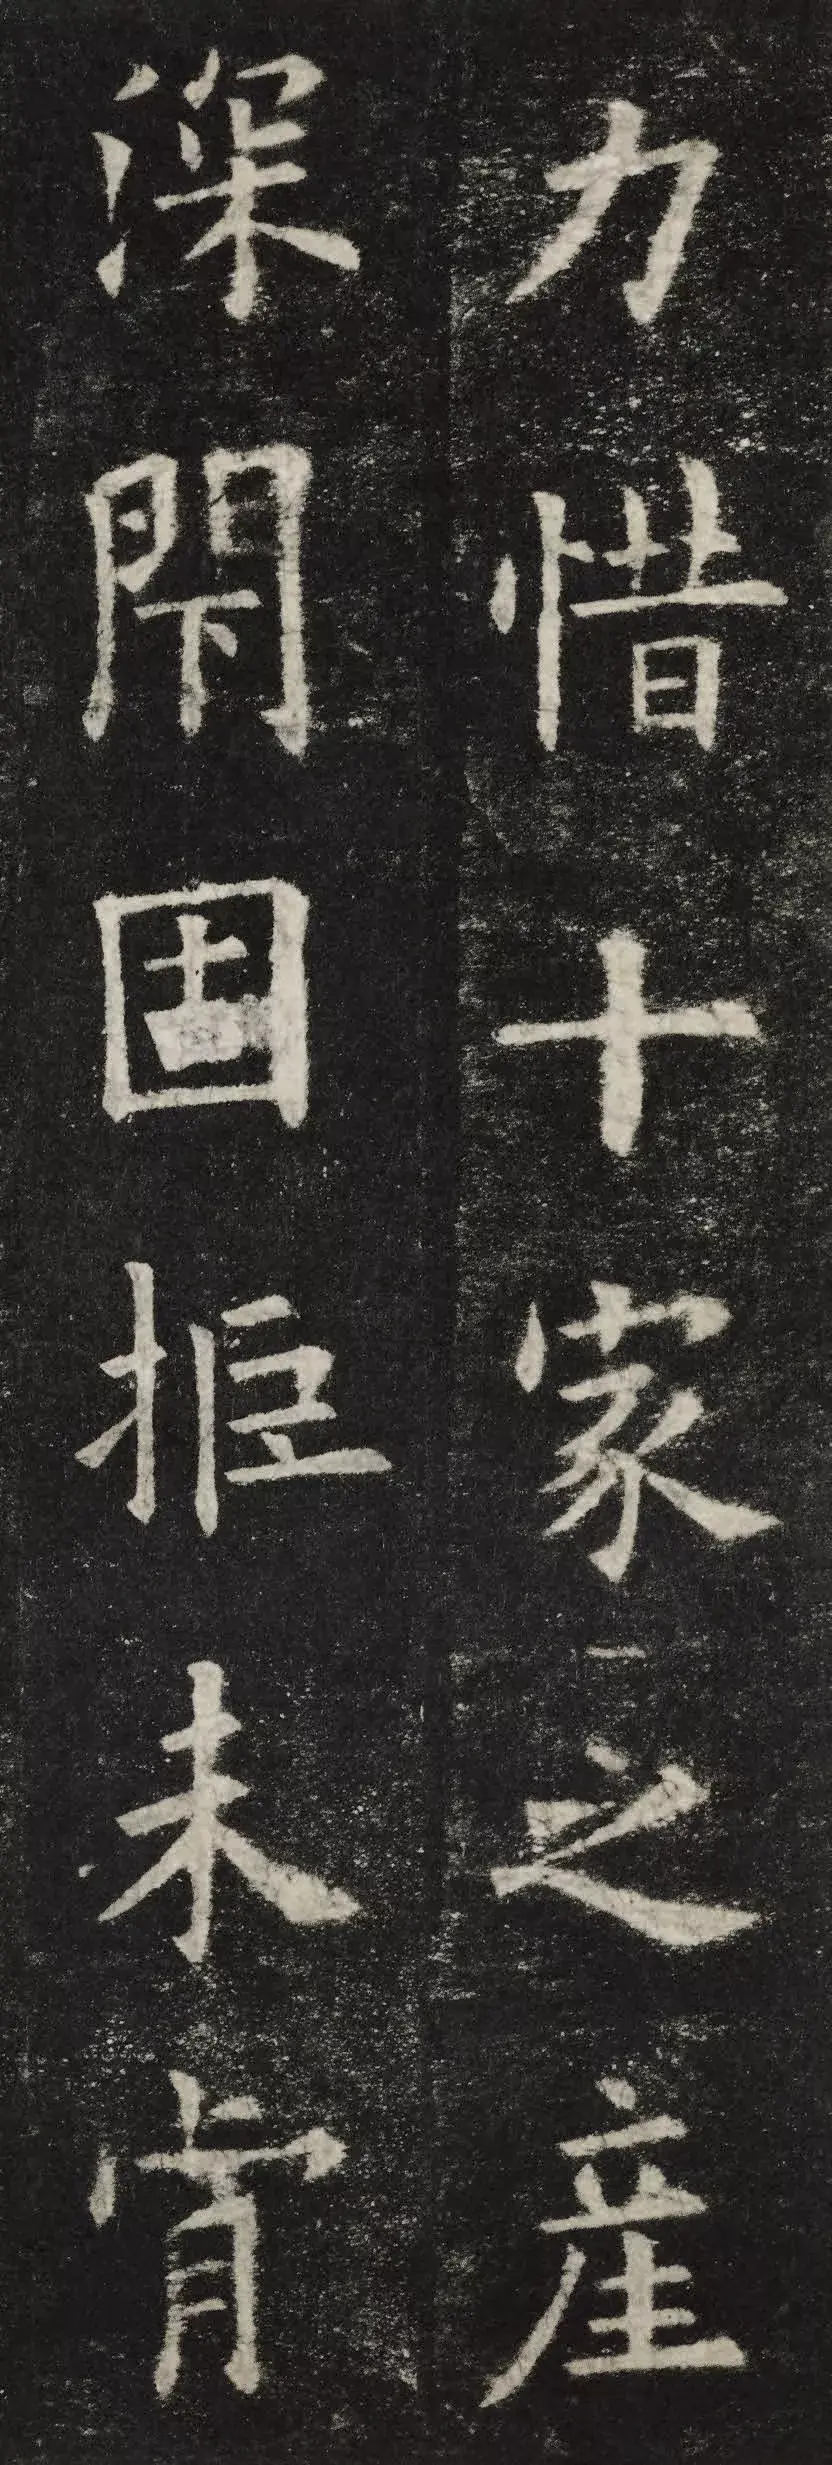 力惜十家之産
深閇固拒未肯